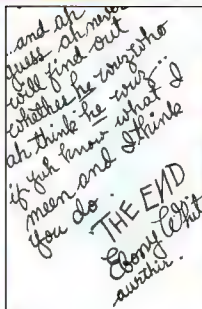 ...and ah
guess ah never
will find out
whether he wuz who
ah think he wuz...
if yuh know what I
meen and I think
you do.
THE END
Ebony Whit
aurthir.